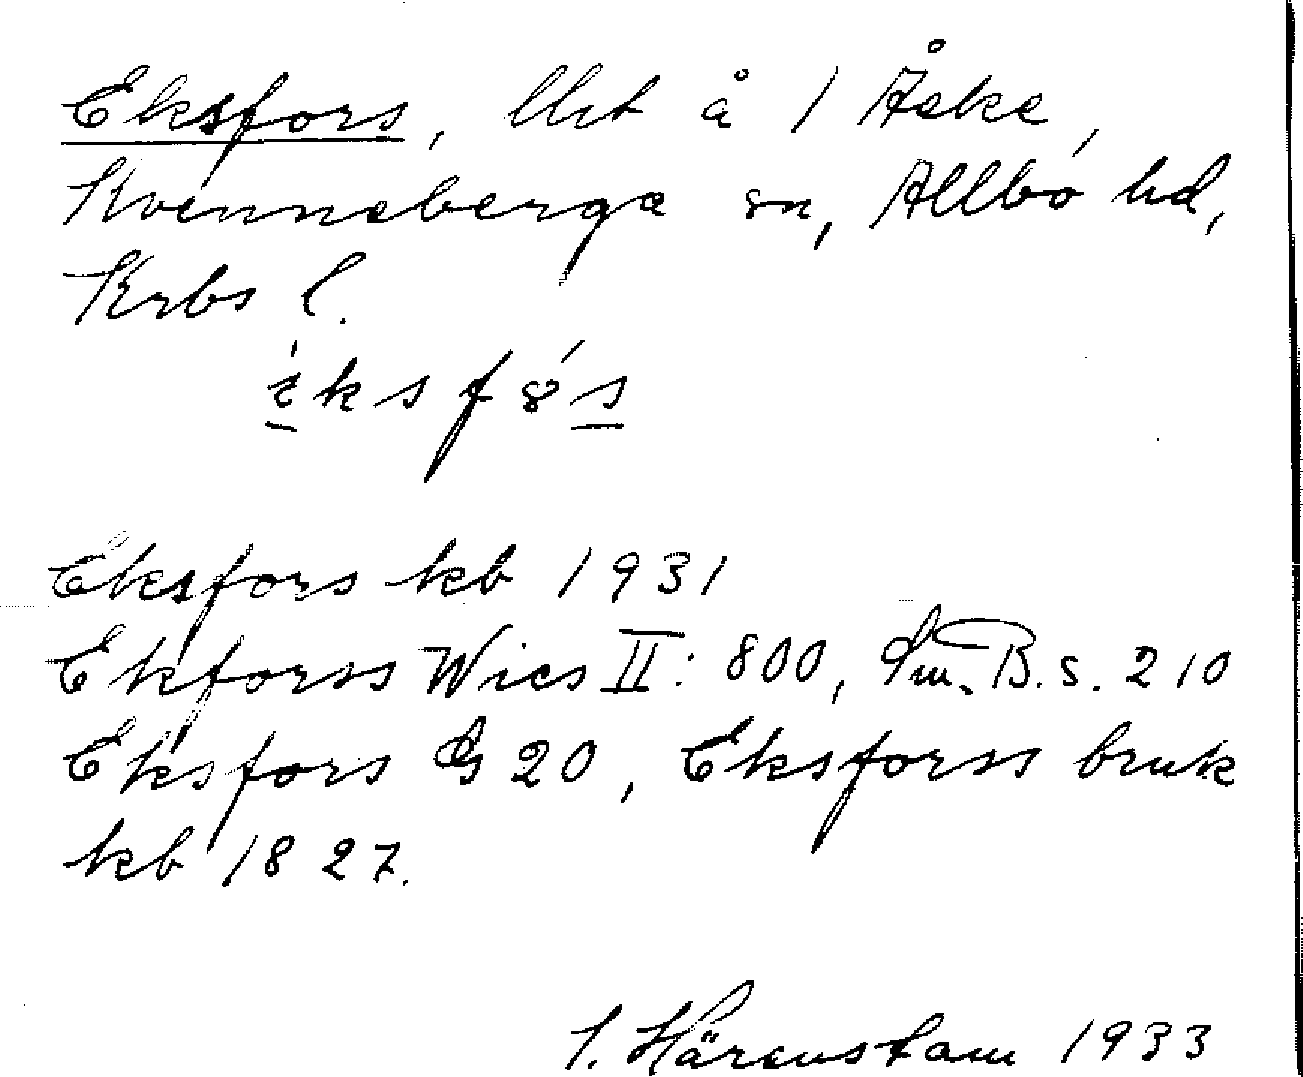 Eksfors, lht å 1 Åske,
Kvenneberga sn, Allbo hd,
Krbs l.
Eksfors kb 1931
Ekforss Wies II: 800, Sm. B. s. 210
Eksfors G 20, Eksforss bruk
kb 1827.
I. Härenstam 1933